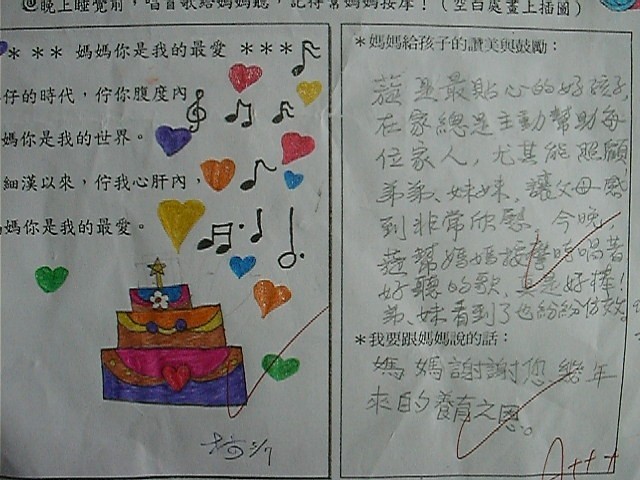 @晚上睡覺前，唱首歌給媽媽聽，記得幫媽媽按摩！（空白處畫上插圖）
* * * 媽媽你是我的最愛 * * *
仔的時代，佇你腹度內
媽你是我的世界。
細漢以來，佇我心肝內，
媽你是我的最愛。
5/7
*媽媽給孩子的讚美與鼓勵：
是最貼心的好孩子，
在家總是主動幫助每
位家人，尤其能照顧
弟弟、妹妹，讓父母感
到非常欣慰，今晚，
幫媽媽按摩時唱著
好聽的歌，真是好棒！
弟、妹看到了也紛紛仿效。
*我要跟媽媽說的話：
媽媽謝謝您幾年
來的養育之恩。
A+++